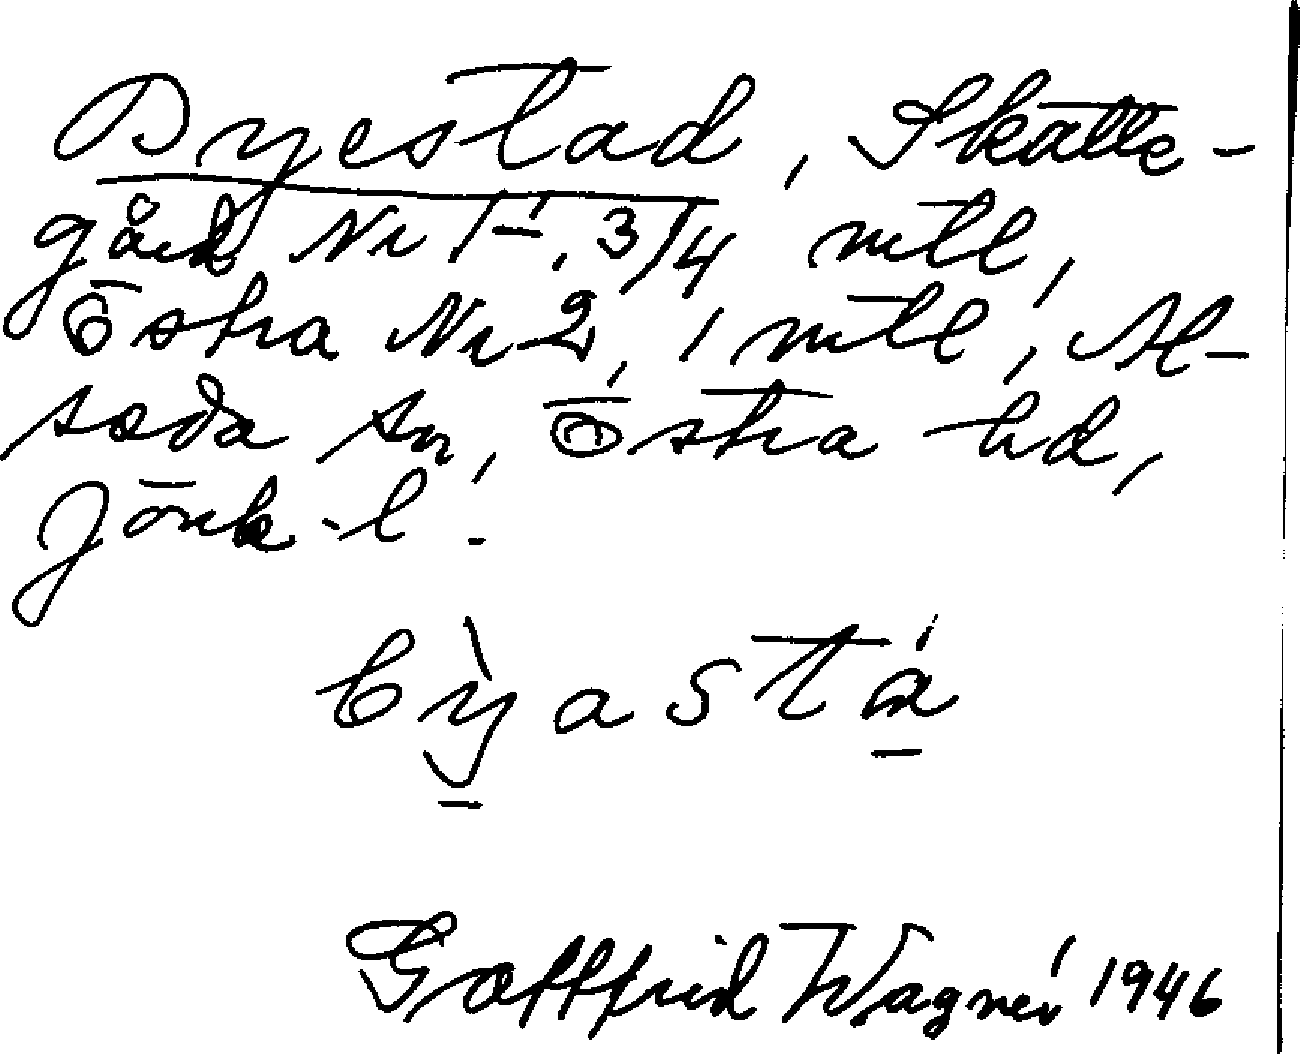 Byestad, Skatte-
gård Nr 1, 3/4 mtl,
Östra Nr 2, 1 mtl, Al-
seda sn, Östra hd,
Jönk. l.
býasta
Gottfrid Wagnér 1946